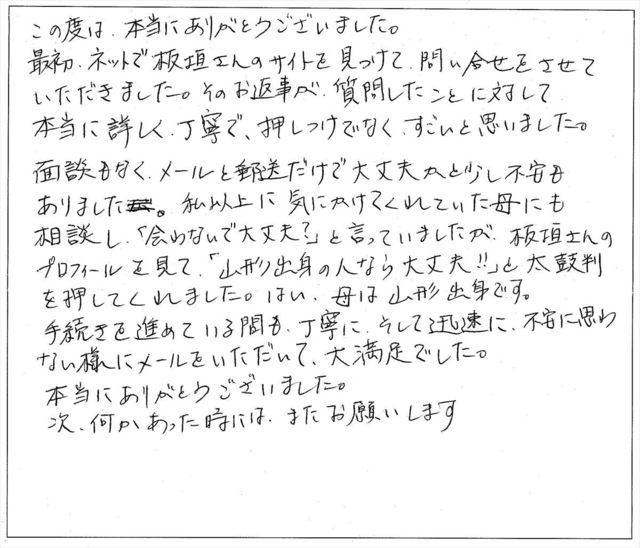 この度は、本当にありがとうございました。
最初、ネットで板垣さんのサイトを見つけて、問い合せをさせて
いただきました。そのお返事が、質問したことに対して
本当に詳しく、丁寧で、押しつけでなく、すごいと思いました。
面談もなく、メールと郵送だけで大丈夫かと少し不安も
ありました。私以上に気にかけてくれていた母にも
相談し、「会わないで大丈夫?」と言っていましたが、板垣さんの
プロフィールを見て、「山形出身の人なら大丈夫!!」と太鼓判
を押してくれました。はい、母は山形出身です。
手続きを進めている間も、丁寧に、そして迅速に、不安に思わ
ない様にメールをいただいて、大満足でした。
本当にありがとうございました。
次、何かあった時には、またお願いします